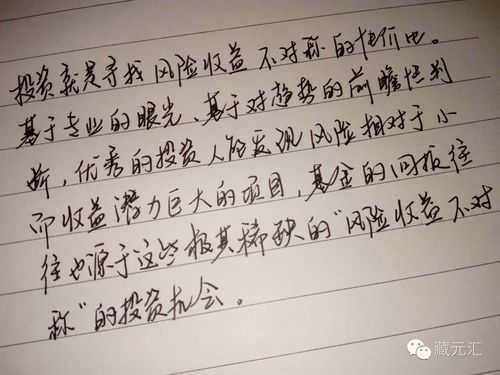 投资就是寻找风险收益不对称的性价比。
基于专业的眼光、基于对趋势的前瞻性判
断，优秀的投资人能发现风险相对于小
而收益潜力巨大的项目，基金的回报往
往也源于这些极其稀缺的“风险收益不对
称”的投资机会。
藏元汇